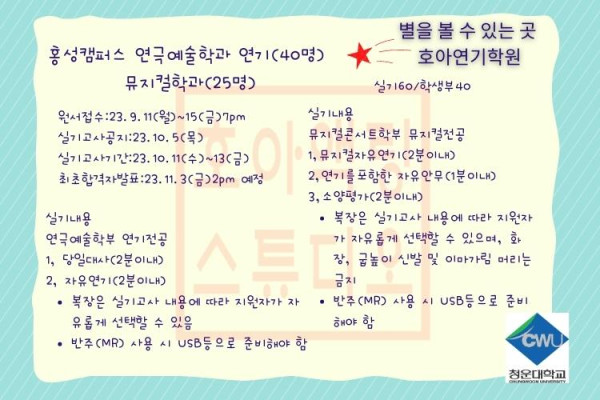 홍성캠퍼스 연극예술학과 연기(40명)
뮤지컬학과(25명)
별을 볼 수 있는 곳
호아연기학원
실기60/학생부40
원서접수:23.9.11(월)~15(금)7pm
실기고사공지:23.10.5(목)
실기고사기간:23.10.11(수)~13(금)
최초합격자발표:23.11.3(금)2pm 예정
실기내용
연극예술학부 연기전공
1, 당일대사(2분이내)
2, 자유연기(2분이내)
• 복장은 실기고사 내용에 따라 지원자가 자
유롭게 선택할 수 있음
• 반주(MR) 사용 시 USB등으로 준비해야 함
실기내용
뮤지컬콘서트학부 뮤지컬전공
1,뮤지컬자유연기(2분이내)
2,연기를포함한 자유안무(1분이내)
3,소양평가(2분이내)
• 복장은 실기고사 내용에 따라 지원자
가 자유롭게 선택할 수 있으며, 화
장, 굽높이 신발 및 이마가림 머리는
금지
• 반주(MR) 사용 시 USB등으로 준비
해야 함
호아액팅
스튜디오
CWU
청운대학교
CHUNGWOON UNIVERSITY